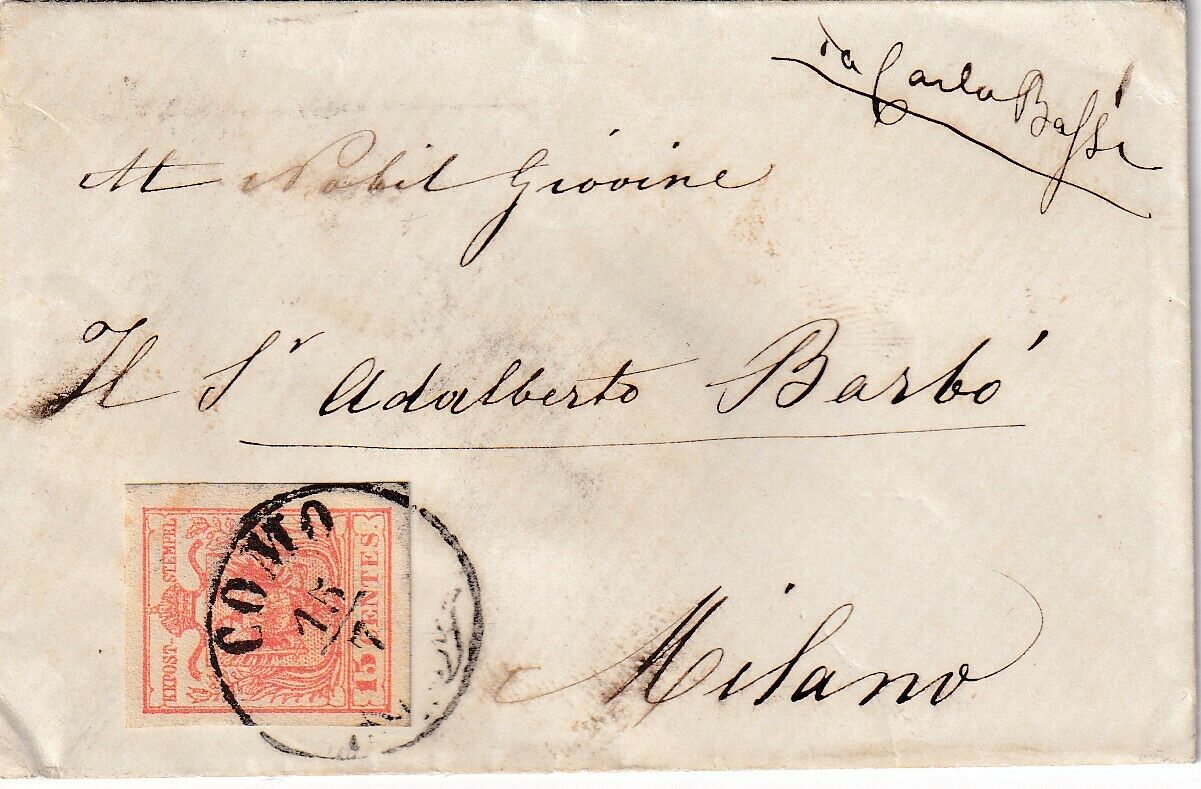 da Carlo Bassi
Al Nobil Giovine
Il Sr Adalberto Barbó
Milano
KKPOST-STEMPEL
15 CENTES.
COMO
15/7